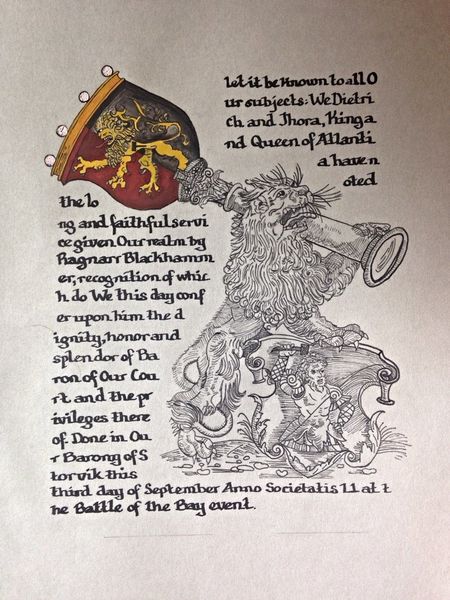 Let it be known to all O
ur subjects: We Dietri
ch and Thora, King a
nd Queen of Atlanti
a have n
oted
the lo
ng and faithful servi
ce given Our realm by
Ragnarr Blackhamm
er, recognition of whic
h do We this day conf
er upon him the d
ignity, honor and
splendor of Ba
ron of Our Cou
rt and the pr
ivileges there
of. Done in Ou
r Barony of S
torvik this
third day of September Anno Societatis LI at t
he Battle of the Bay event.